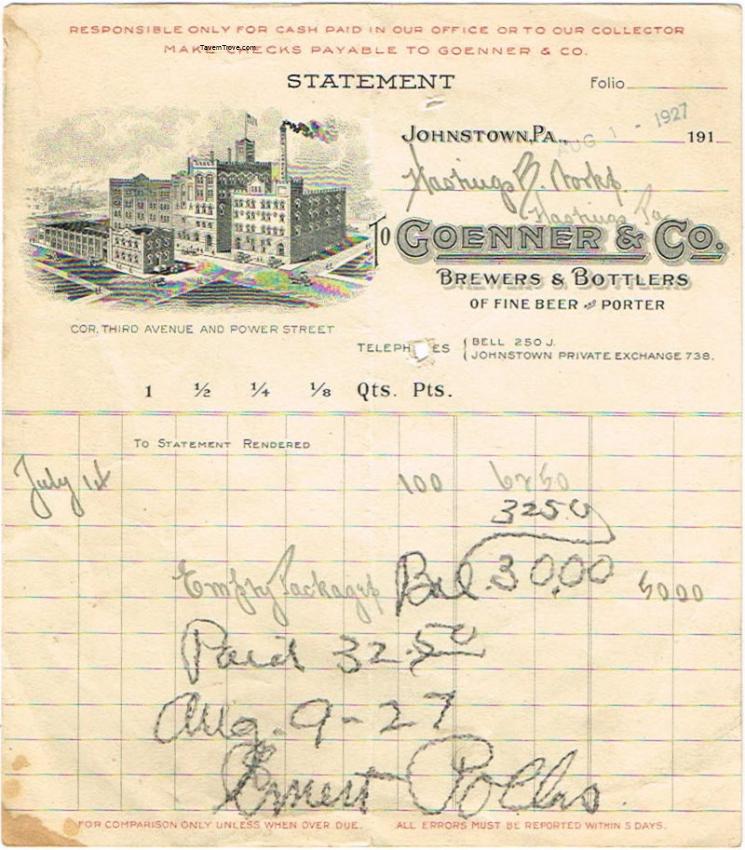 RESPONSIBLE ONLY FOR CASH PAID IN OUR OFFICE OR TO OUR COLLECTOR
MAKE CHECKS PAYABLE TO GOENNER & CO.
TavernTrove.com
STATEMENT
Folio
JOHNSTOWN, PA., AUG 1 - 1927 191
Hastings B. Works
Hastings Pa
To GOENNER & CO.
BREWERS & BOTTLERS
OF FINE BEER AND PORTER
COR. THIRD AVENUE AND POWER STREET
TELEPH ES { BELL 250 J.
JOHNSTOWN PRIVATE EXCHANGE 738.
1 ½ ¼ ⅛ Qts. Pts.
TO STATEMENT RENDERED
July 1st 100 6250
3250
Empty Packages Bal. 30.00 5000
Paid 32.50
Aug. 9-27
Ernest
FOR COMPARISON ONLY UNLESS WHEN OVER DUE. ALL ERRORS MUST BE REPORTED WITHIN 5 DAYS.